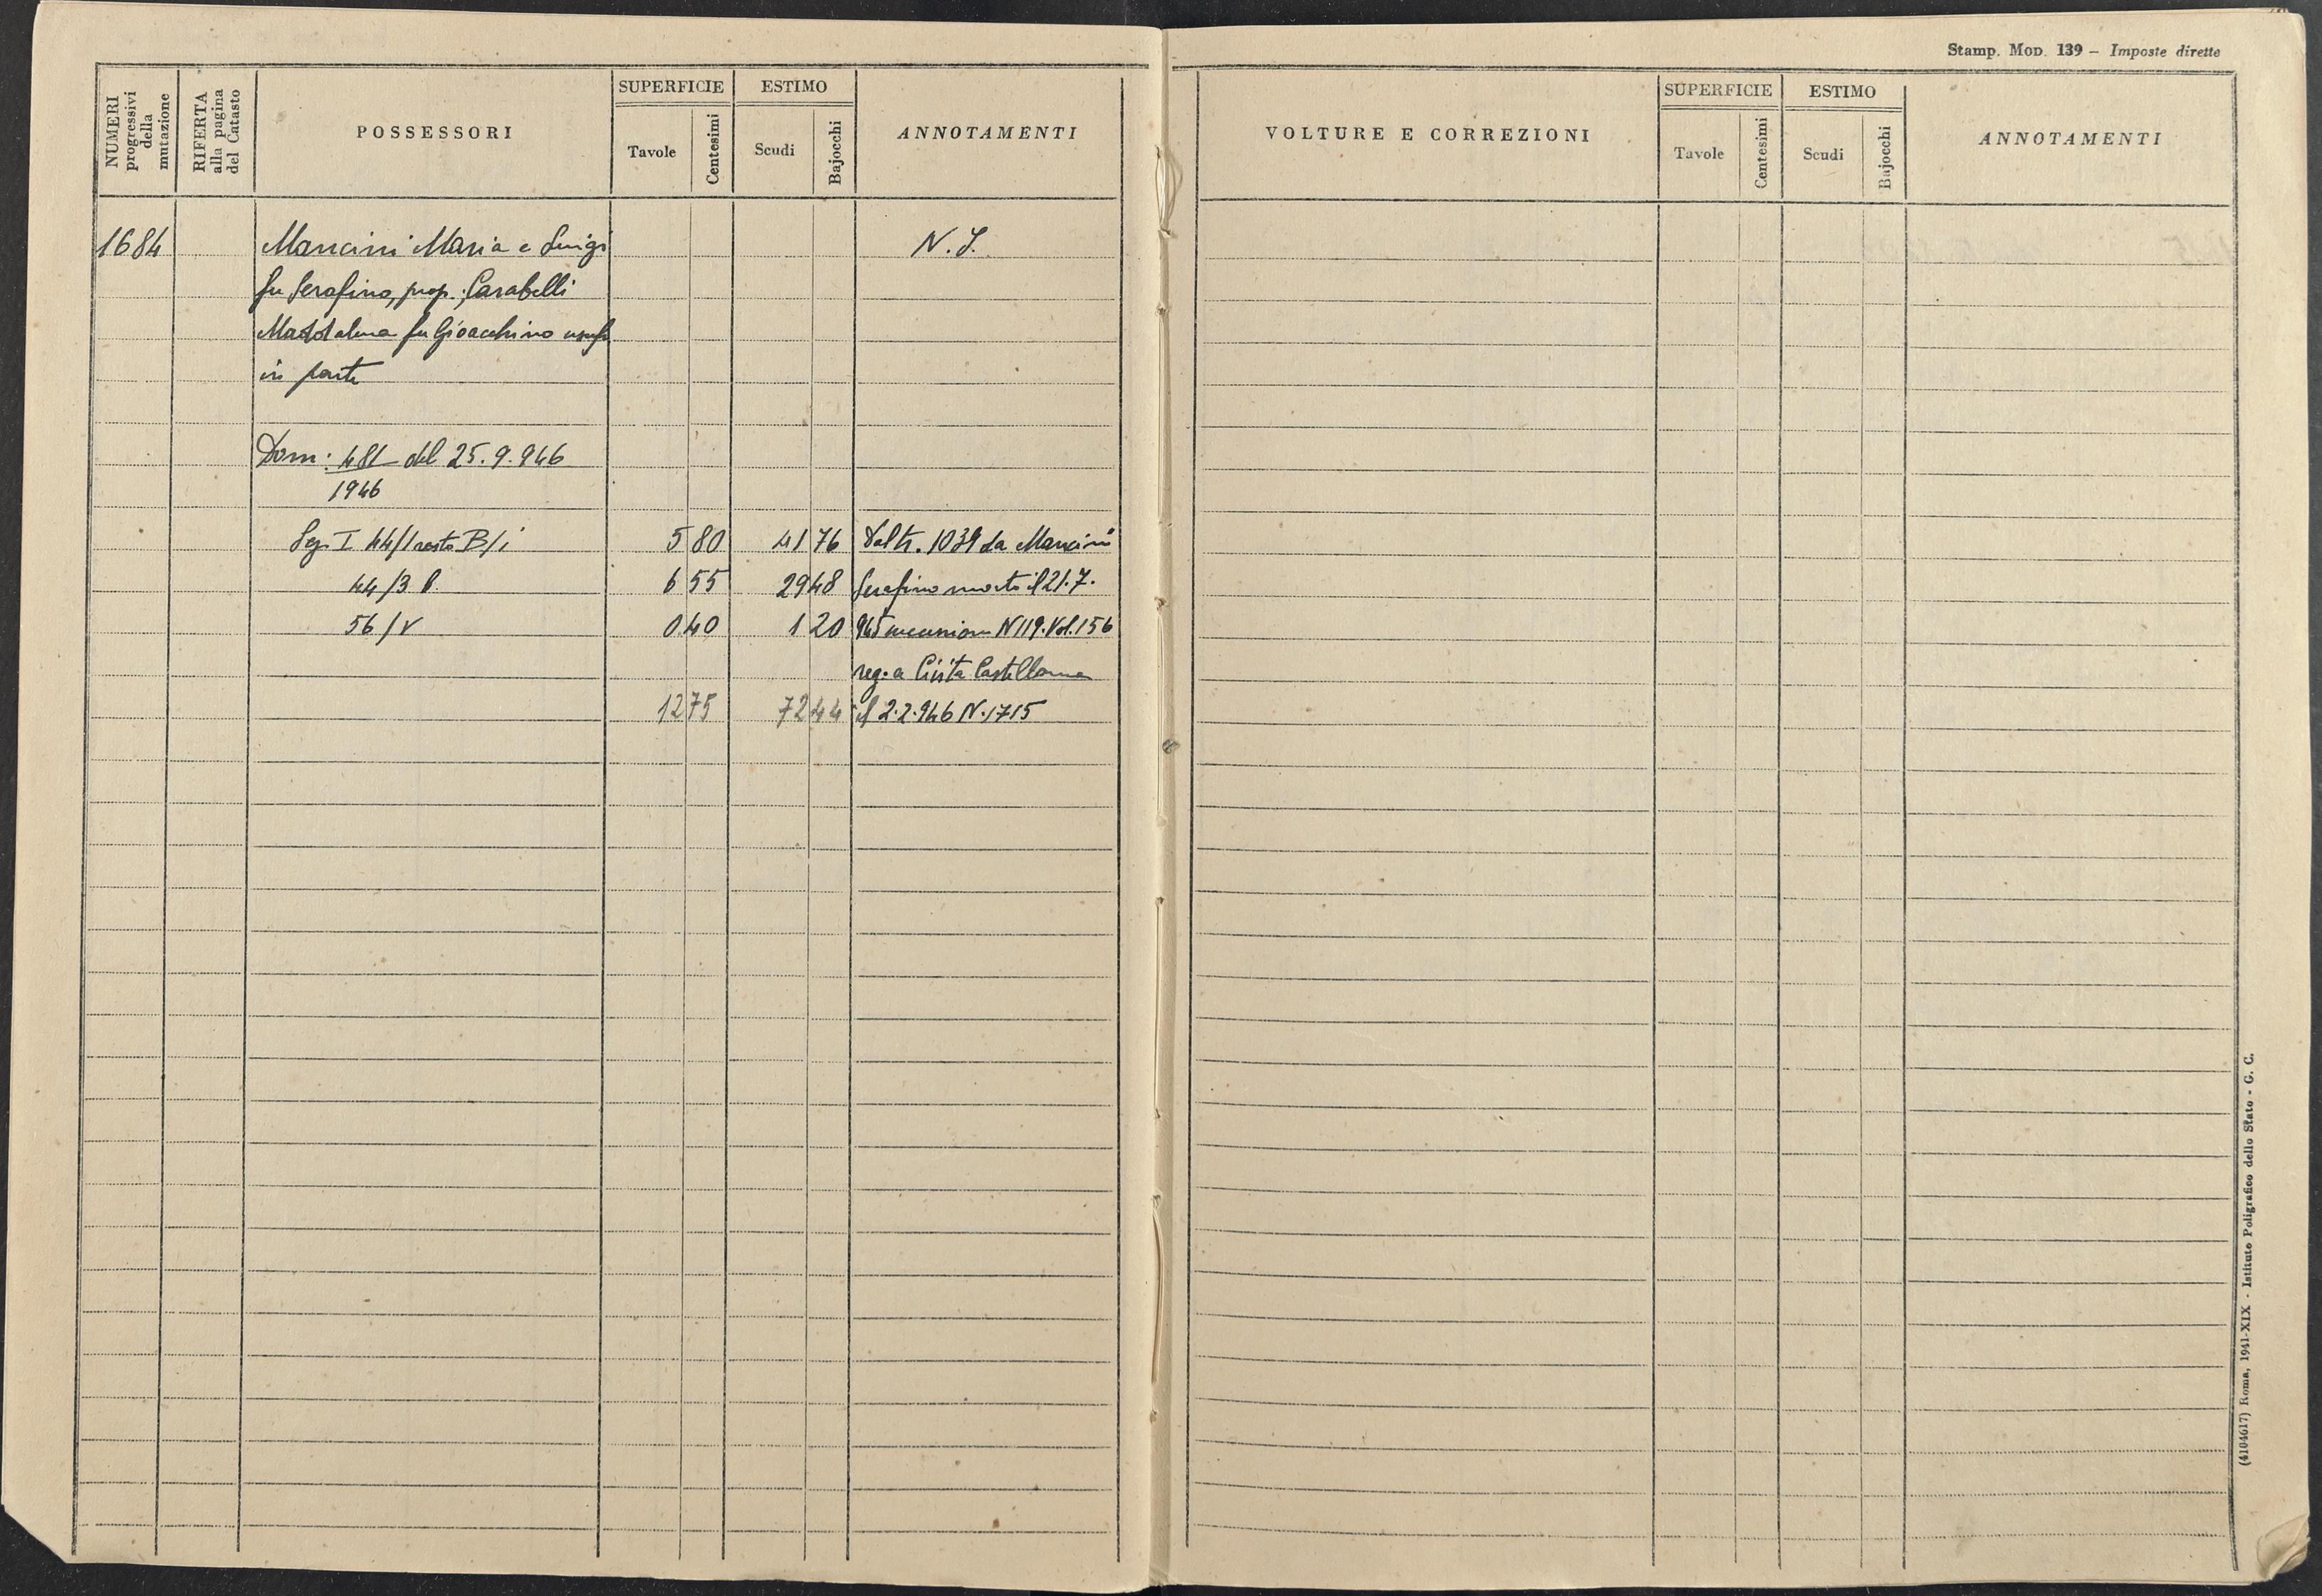 NUMERI progressivi della mutazione
RIFERTA alla pagina del Catasto
POSSESSORI
SUPERFICIE
Tavole
Centesimi
ESTIMO
Scudi
Bajocchi
ANNOTAMENTI
1684 Mancini Maria e Luigi N.I.
fu Serafino, prop.; Carabelli
Maddalena fu Gioacchino usuf
in parte
Dom: 481 del 25.9.946
1946
Sez. I 44/1 resto B/i 5 80 41 76 Daltr. 1039 da Mancini
44/3 6 55 29 48 Serafino morto il 21.7.
56/ 0 40 1 20 945 N 119. Vol. 156
reg. a Civita Castellana
12 75 72 44 il 2.2.946 N. 1715
Stamp. Mod. 139 – Imposte dirette
VOLTURE E CORREZIONI
SUPERFICIE
Tavole
Centesimi
ESTIMO
Scudi
Bajocchi
ANNOTAMENTI
(4104617) Roma, 1941-XIX - Istituto Poligrafico dello Stato - G. C.